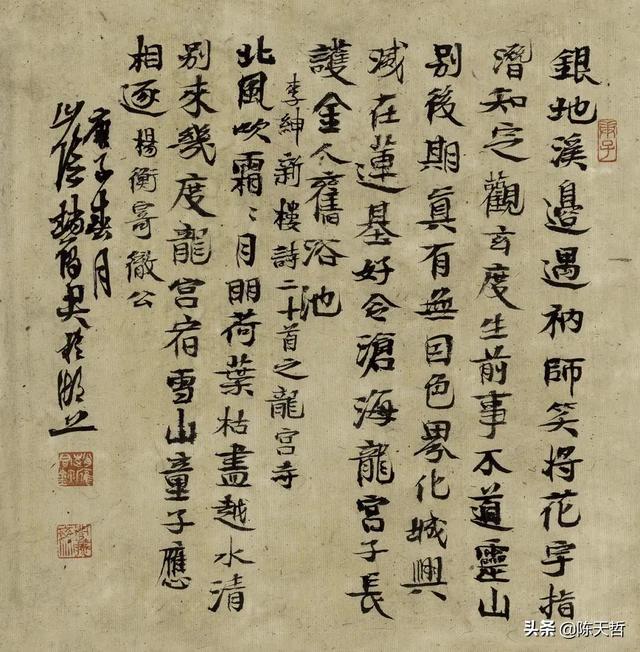 庚子
銀地溪邊遇衲師笑將花宇指
潛知定觀玄度生前事不道靈山
別後期真有無因色界化城興
滅在蓮基好令滄海龍宮子長
護金人舊浴池
李紳新樓詩二十首之龍宮寺
北風吹霜〻月明荷葉枯盡越水清
別來幾度龍宮宿雪山童子應
相逐 楊衡寄徹公
庚子春月
山陰 於湖上
头条 @陈天哲